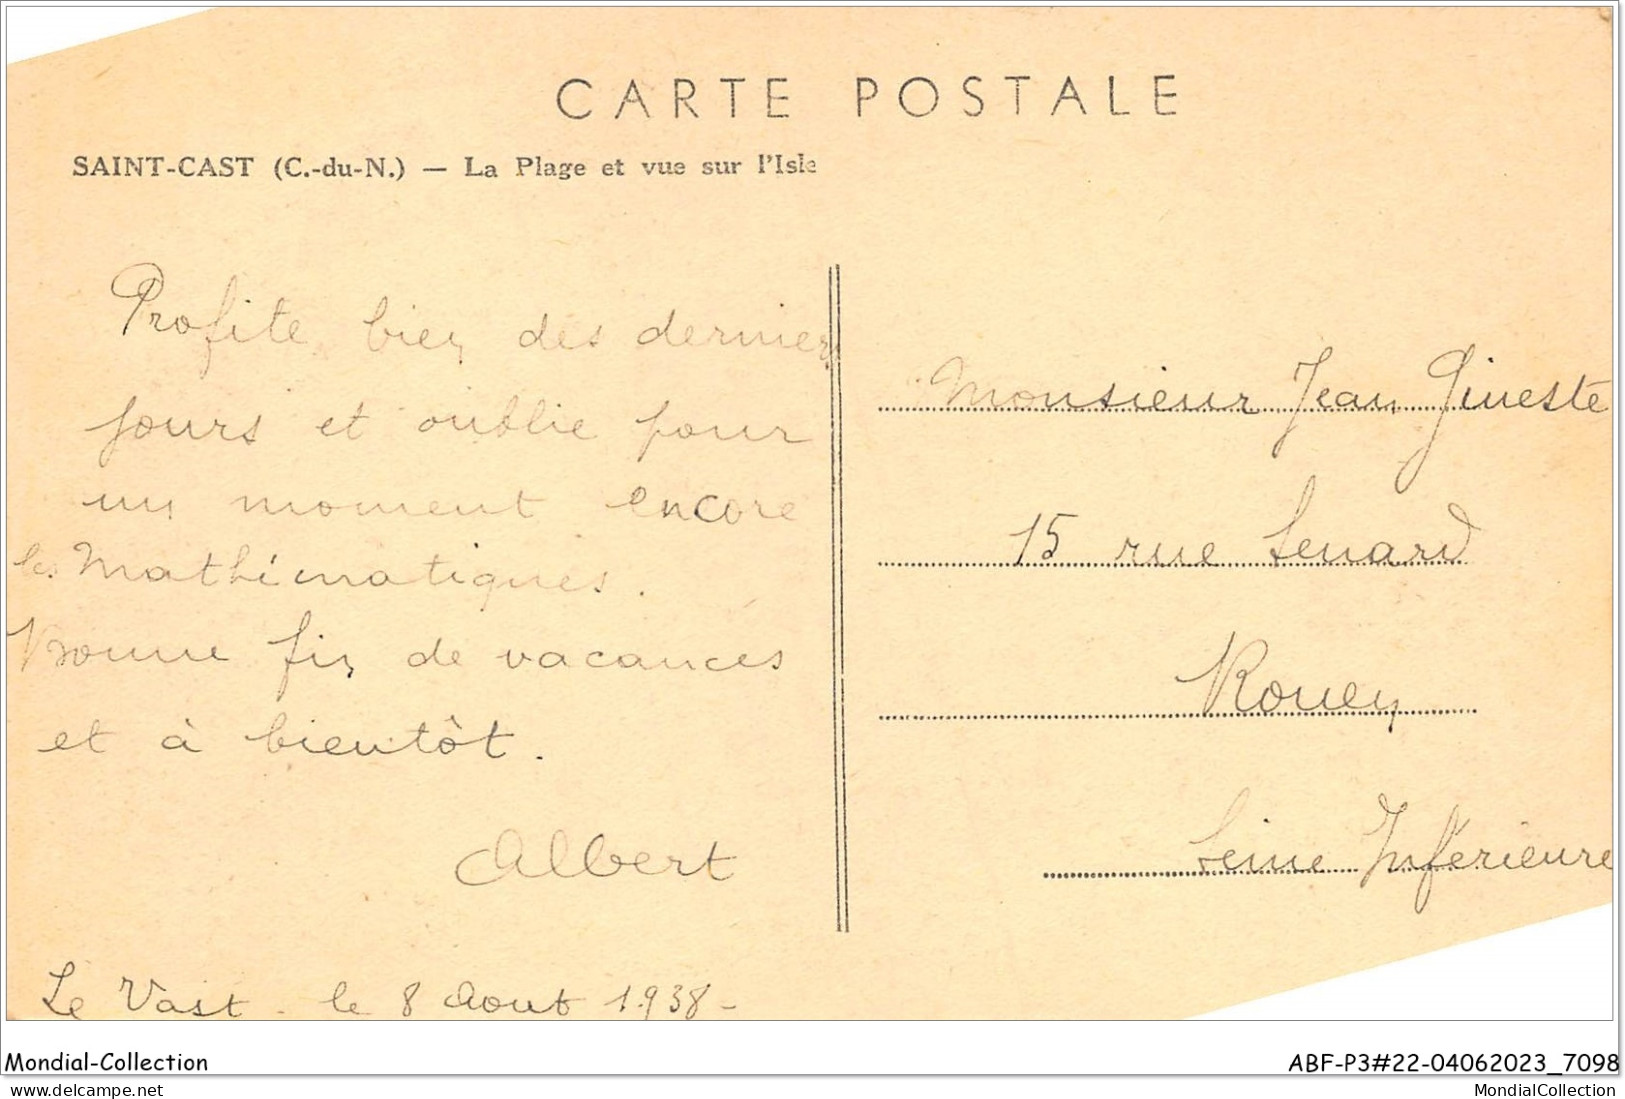 CARTE POSTALE
SAINT-CAST (C.-du-N.) — La Plage et vue sur l'Isle
Profite bien des derniers
jours et oublie pour
un moment encore
les Mathématiques.
Bonne fin de vacances
et à bientôt.
Albert
Le Vast - le 8 Aout 1938 -
Monsieur Jean Gineste
15 rue Lenard
Rouen
Seine Inférieure
Mondial-Collection
ABF-P3#22-04062023_7098
delcampe.net
MondialCollection